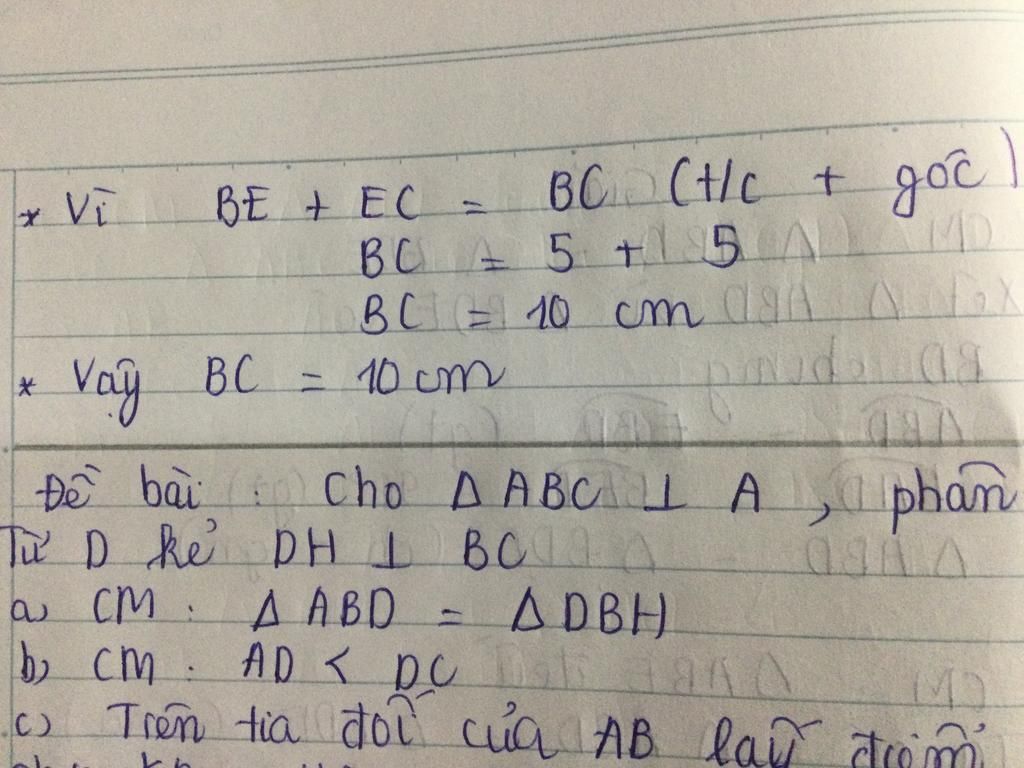 * Vì BE + EC = BC (t/c + góc)
BC = 5 + 5
BC = 10 cm
* Vậy BC = 10 cm
Đề bài : Cho Δ ABC ⊥ A , phân
Từ D kẻ DH ⊥ BC
a) CM : Δ ABD = Δ DBH
b) CM : AD < DC
c) Trên tia đối của AB lấy điểm